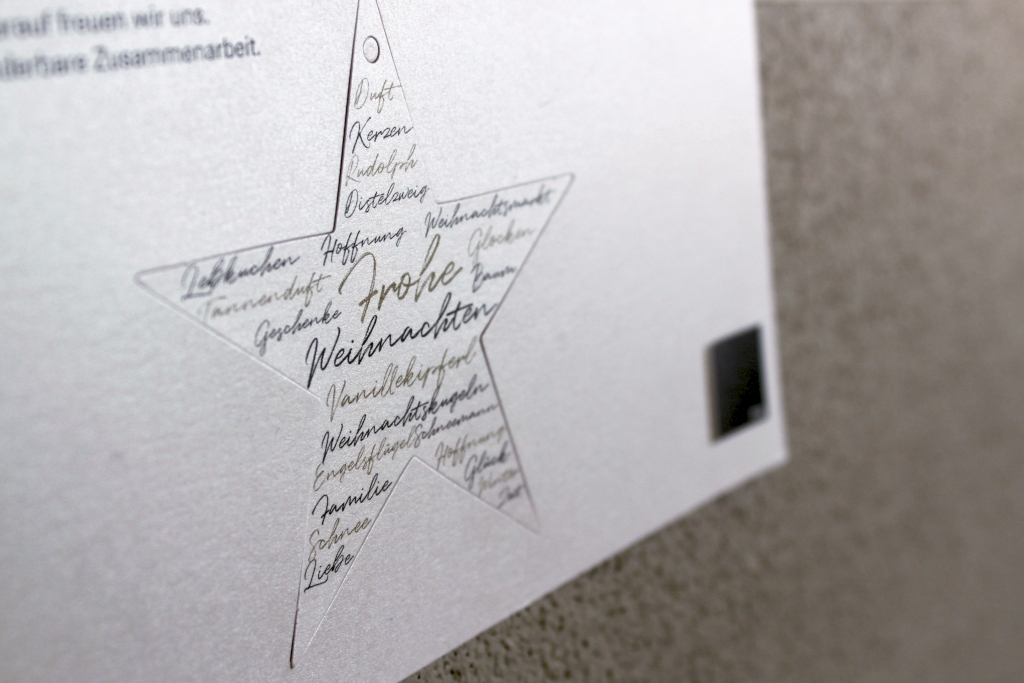 darauf freuen wir uns.
Zusammenarbeit.
Duft
Kerzen
Rudolph
Distelzweig
Hoffnung Weihnachtsmarkt
Lebkuchen Glocken
Tannenduft Frohe Baum
Geschenke
Weihnachten
Vanillekipferl
Weihnachtskugeln
Engelsflügel Schneemann
Familie Hoffnung
Schnee Glück
Liebe